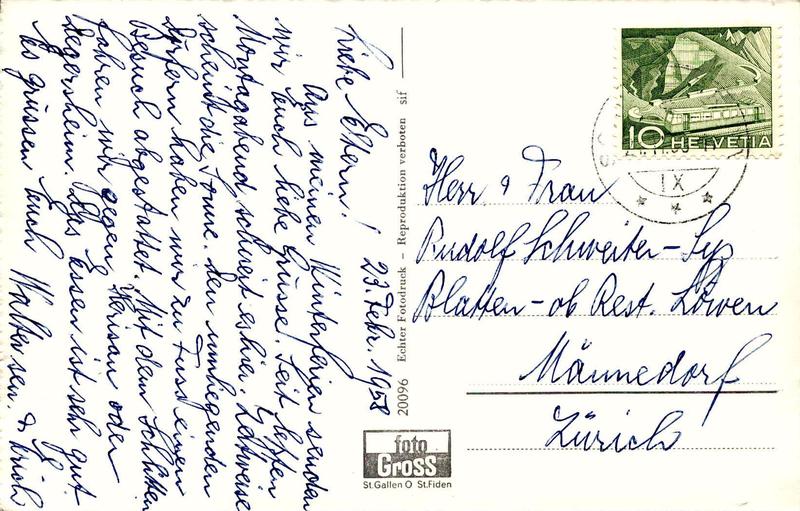 Liebe Eltern! 23. Febr. 1958
Aus meinen Winterferien senden
wir Euch liebe Grüsse. Seit letzten
Montagabend schneit es hier. Zeitweise
scheint die Sonne. Den umliegenden
Dörfern haben wir zu Fuss einen
Besuch abgestattet. Mit dem Schlitten
fahren wir gegen Herisau oder
Degersheim. Das Essen ist sehr gut
Es grüssen Euch Walter sen. &
20096 Echter Fotodruck - Reproduktion verboten sif
foto
Gross
St.Gallen O St.Fiden
10 HELVETIA
IX
Herr & Frau
Rudolf Schweiter-
Blatten-ob Rest. Löwen
Männedorf
Zürich